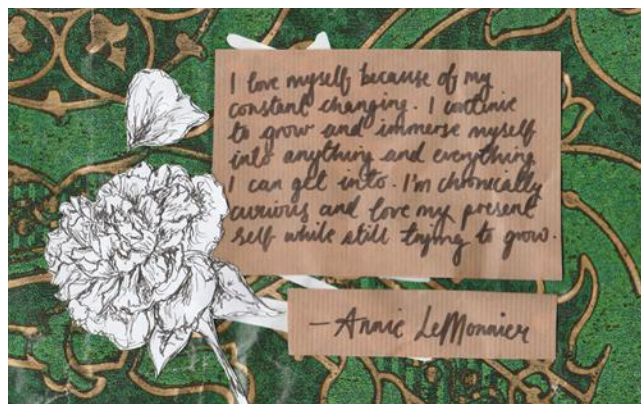 I love myself because of my
constant changing. I continue
to grow and immerse myself
into anything and everything
I can get into. I'm chronically
curious and love my present
self while still trying to grow.
—Annie LeMonnier